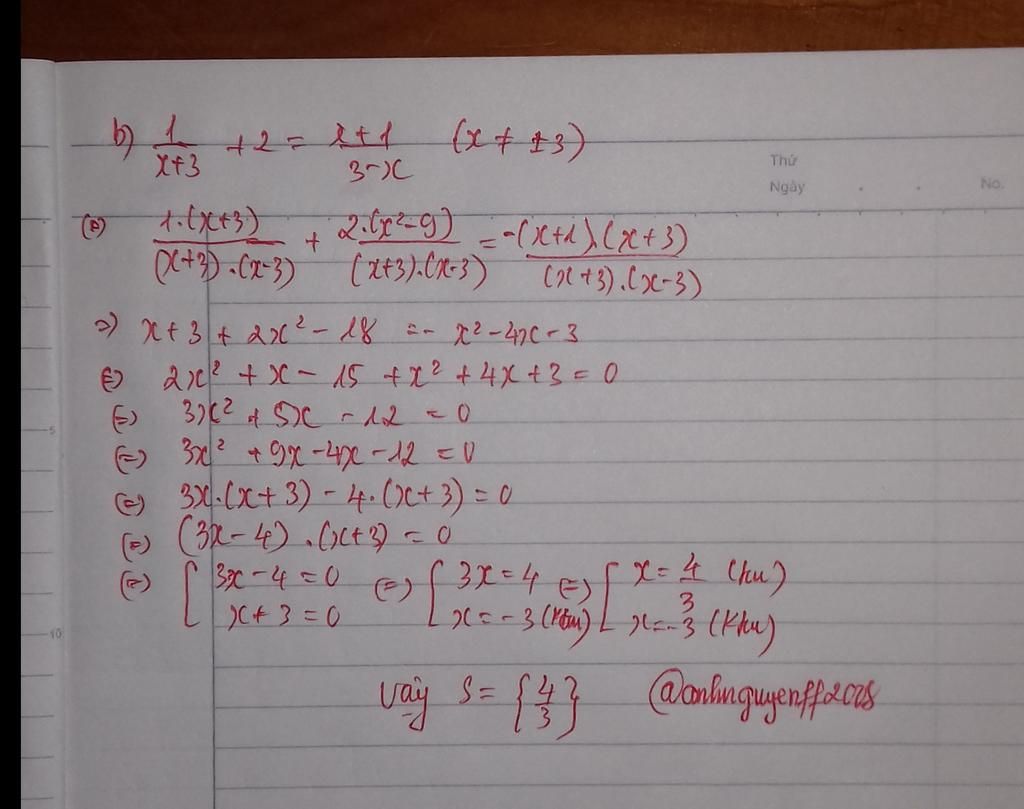 b) 1/(x+3) + 2 = (x+1)/(3-x) (x ≠ ±3)
Thứ
Ngày . . No.
(=) 1.(x+3)/((x+3).(x-3)) + 2.(x²-9)/((x+3).(x-3)) = -(x+1).(x+3)/((x+3).(x-3))
=) x+3 + 2x² - 18 = - x² - 4x - 3
(=) 2x² + x - 15 + x² + 4x + 3 = 0
5
(=) 3x² + 5x - 12 = 0
(=) 3x² + 9x - 4x - 12 = 0
(=) 3x.(x+3) - 4.(x+3) = 0
(=) (3x-4).(x+3) = 0
(=) [ 3x-4 = 0 (=) [ 3x = 4 (=) [ x = 4/3 (tm)
10
x+3 = 0 x = -3 (Ktm) x = -3 (Ktm)
Vậy S = {4/3} @anhnguyenff2008